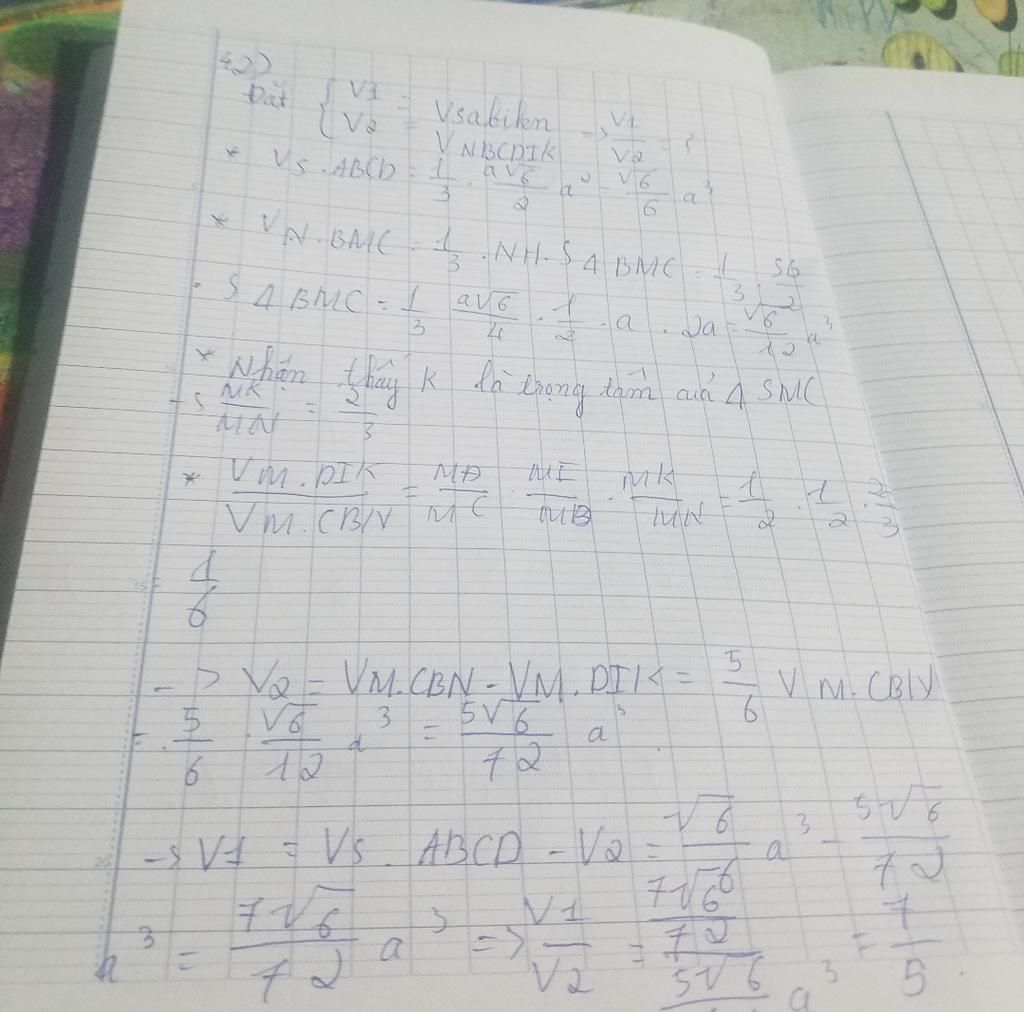 42)
Đặt { V1 = Vsabikn
V2 = VNBCDIK => V1/V2 = ?
* VS.ABCD = 1/3 . a√6/2 a² = √6/6 a³
* VN.BMC = 1/3 . NH. SΔBMC = 1/3 . SG/2
. SΔBMC = 1/3 a√6/4 . 1/2 . a . 2a = √6/12 a³
* Nhận thấy K là trọng tâm của Δ SMC
-> MK/MN = 2/3
* VM.DIK/VM.CBN = MD/MC . MI/MB . MK/MN = 1/2 . 1/2 . 2/3
= 1/6
-> V2 = VM.CBN - VM.DIK = 5/6 VM.CBN
= 5/6 . √6/12 a³ = 5√6/72 a³
-> V1 = VS.ABCD - V2 = √6/6 a³ - 5√6/72
a³ = 7√6/72 a³ => V1/V2 = 7√6/72 / 5√6 a³ = 7/5